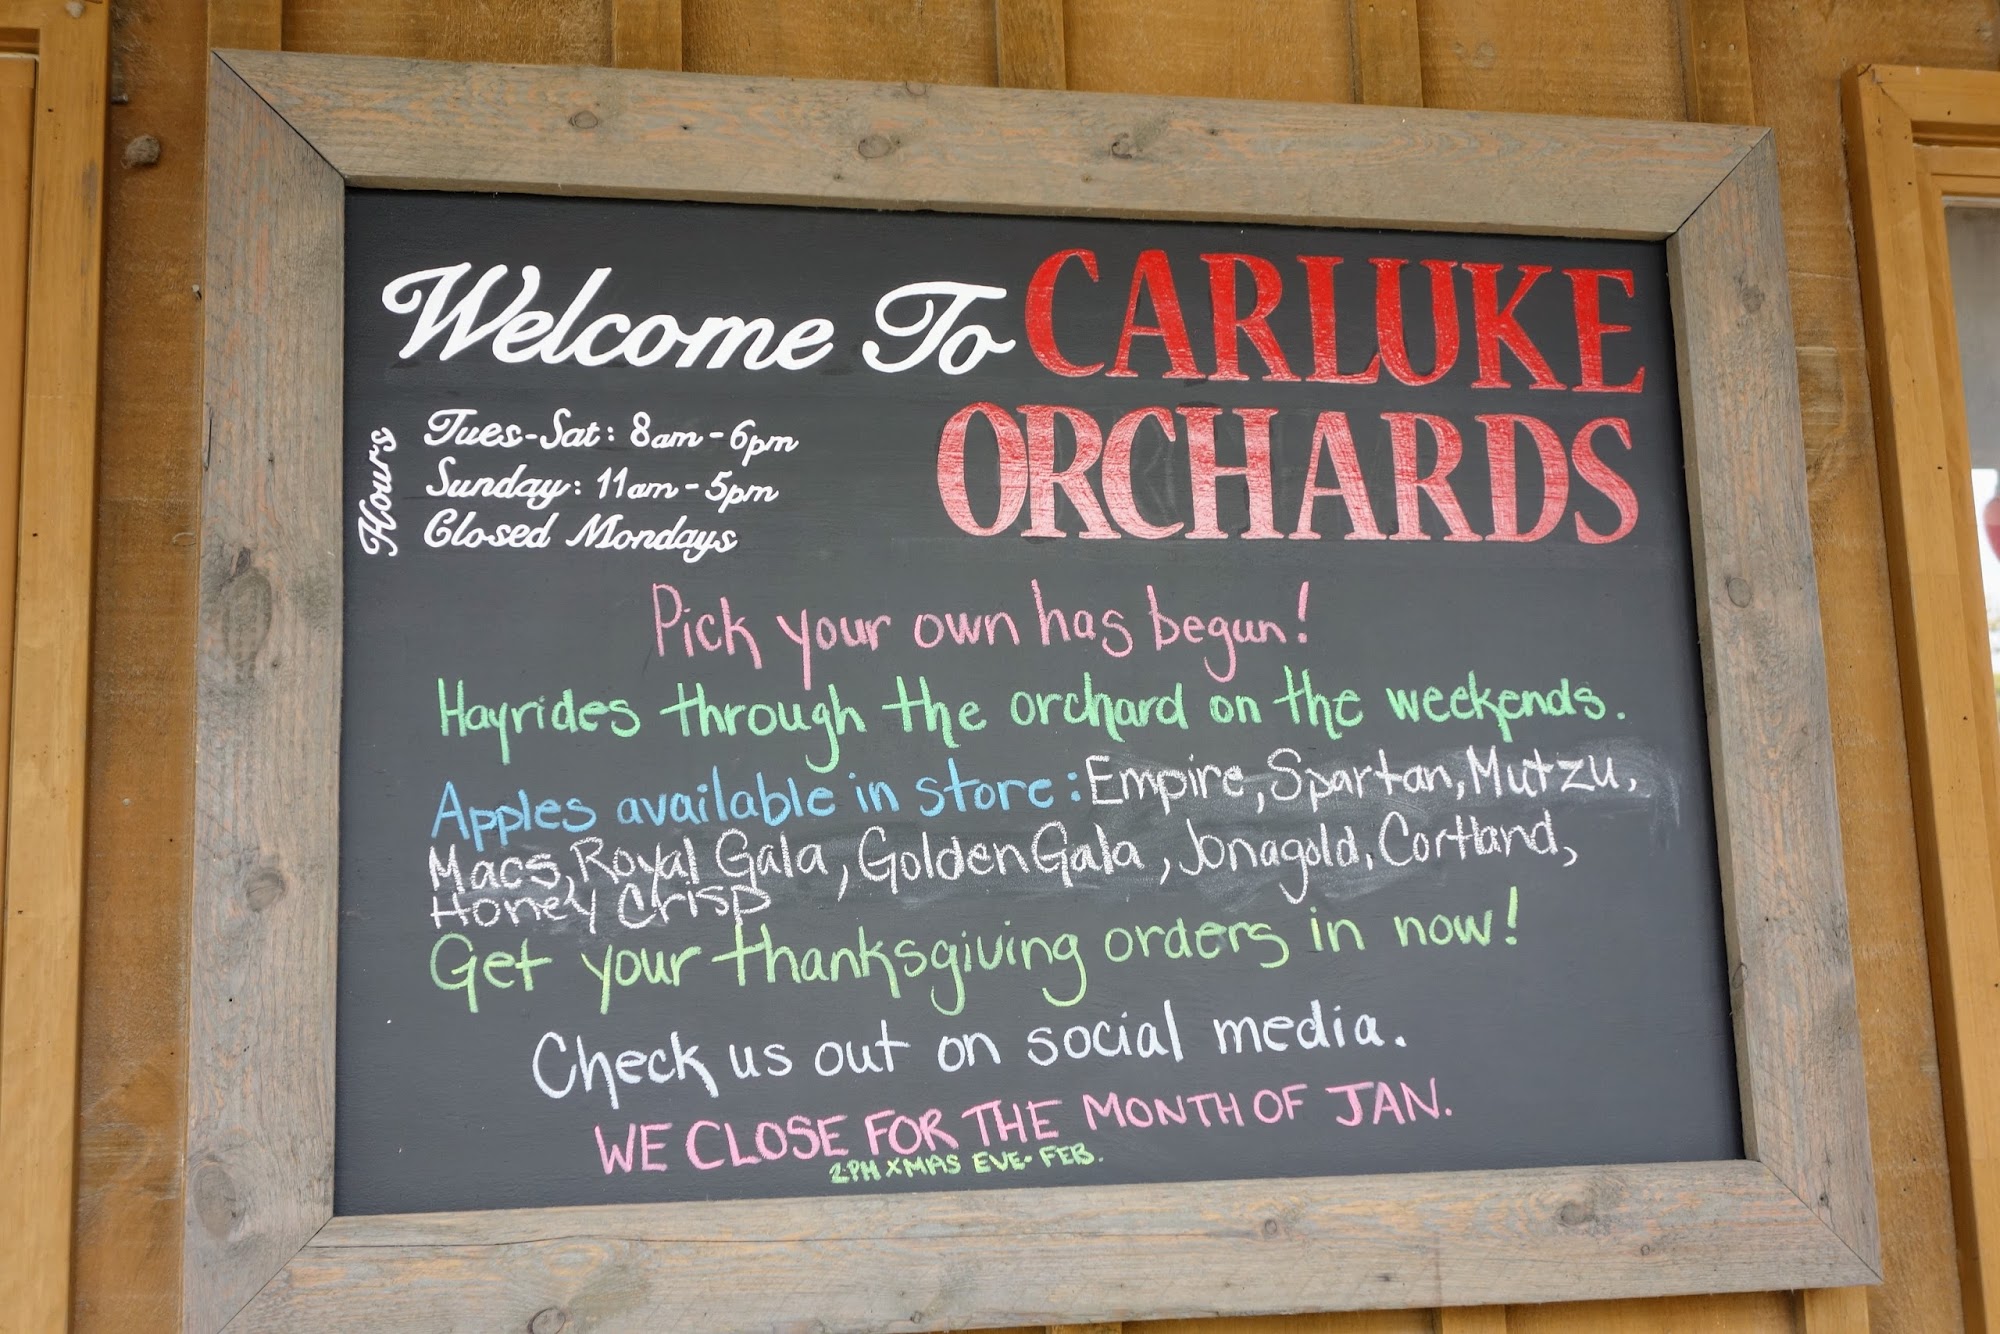 Welcome To CARLUKE
ORCHARDS
Hours
Tues-Sat: 8am-6pm
Sunday: 11am-5pm
Closed Mondays
Pick your own has begun!
Hayrides through the orchard on the weekends.
Apples available in store: Empire, Spartan, Mutzu,
Macs, Royal Gala, Golden Gala, Jonagold, Cortland,
Honey Crisp
Get your thanksgiving orders in now!
Check us out on social media.
WE CLOSE FOR THE MONTH OF JAN.
2PM XMAS EVE- FEB.